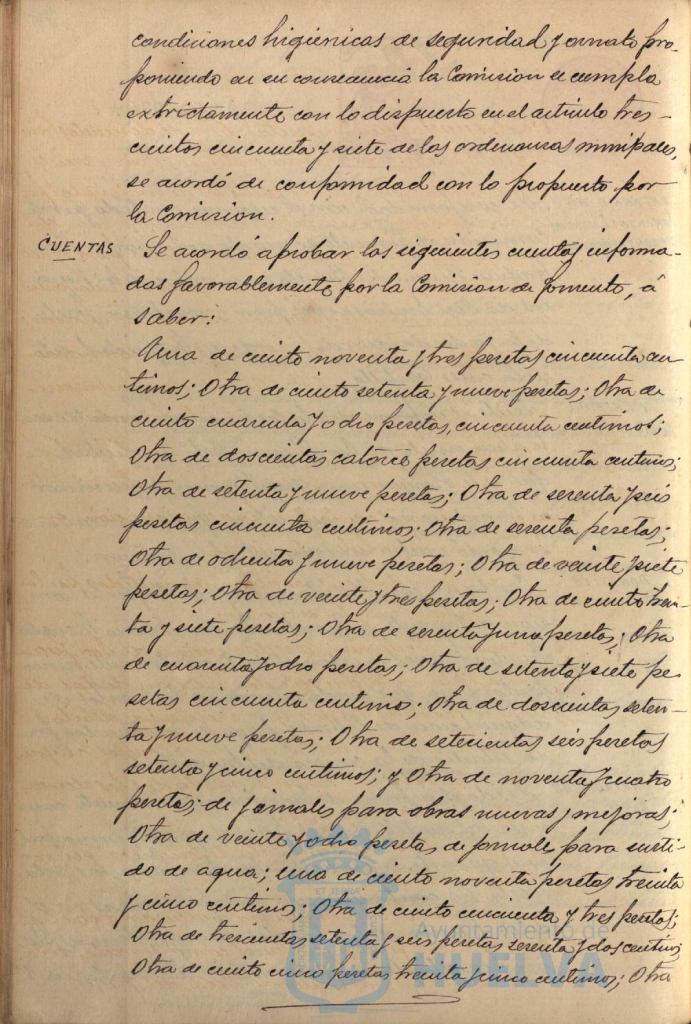 condiciones higiénicas de seguridad y ornato pro-
poniendo en su consecuencia la Comision se cumpla
extrictamente con lo dispuesto en el articulo tres-
cientos cincuenta y siete de las ordenanzas munipales,
se acordó de conformidad con lo propuesto por
la Comision.
CUENTAS
Se acordó aprobar las siguientes cuentas informa-
das favorablemente por la Comision de Fomento, á
saber:
Una de ciento noventa y tres pesetas cincuenta cen-
timos; Otra de ciento setenta y nueve pesetas; Otra de
ciento cuarenta y ocho pesetas, cincuenta centimos;
Otra de doscientas catorce pesetas cincuenta centimos;
Otra de setenta y nueve pesetas; Otra de sesenta y seis
pesetas cincuenta centimos; Otra de sesenta pesetas;
Otra de ochenta y nueve pesetas; Otra de veinte y siete
pesetas; Otra de veinte y tres pesetas; Otra de ciento trein-
ta y siete pesetas; Otra de sesenta y una pesetas; Otra
de cuarenta y ocho pesetas; Otra de setenta y siete pe
setas cincuenta centimos; Otra de doscientas seten-
ta y nueve pesetas; Otra de setecientas seis pesetas
setenta y cinco centimos; y Otra de noventa y cuatro
pesetas; de jornales para obras nuevas y mejoras;
Otra de veinte y ocho pesetas de jornale para surti-
do de agua; una de ciento noventa pesetas treinta
y cinco centimos; Otra de ciento cincuenta y tres pesetas;
Otra de trescientas setenta y seis pesetas sesenta y dos centimos
Otra de ciento cinco pesetas treinta y cinco centimos; Otra
Ayuntamiento de
HUELVA